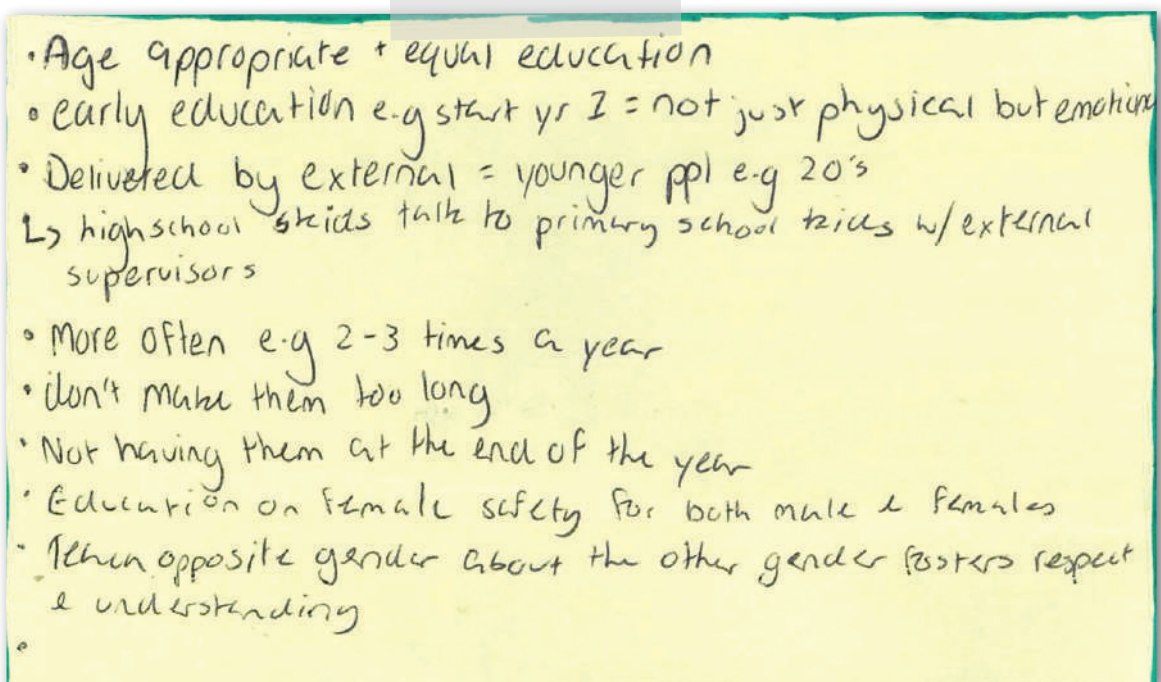 · Age appropriate + equal education
• early education e.g start yr 1 = not just physical but emotiona
• Delivered by external = younger ppl e.g 20's
↳ highschool skids talk to primary school kids w/ external
supervisors
• More often e.g 2-3 times a year
• don't make them too long
• Not having them at the end of the year
• Education on female safety for both male & females
• Teach opposite gender about the other gender fosters respect
& understanding
•